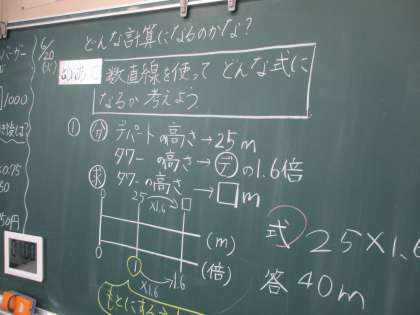 どんな計算になるのかな?
6/20
(火)
めあて 数直線を使って どんな式に
なるか 考えよう
① 分 デパートの高さ→25m
タワーの高さ→デの1.6倍
求 タワーの高さ→□m
0 25 ×1.6 □
(m)
0 1 ×1.6 1.6
(倍)
式 25×1.6
答 40m
1000
0.75
50
50円